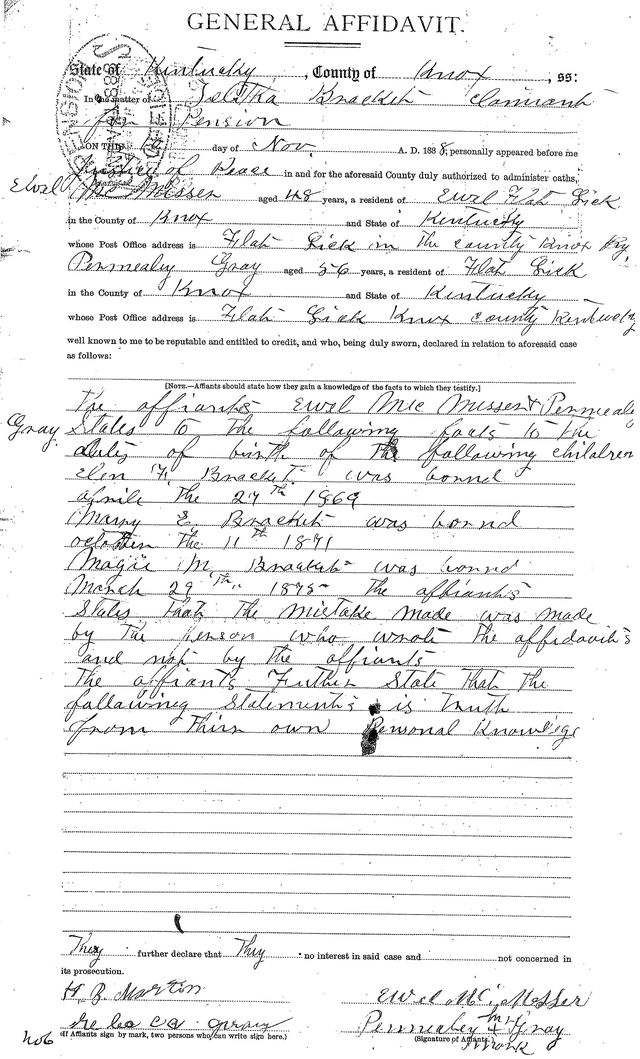 GENERAL AFFIDAVIT.
State of Kentucky, County of Knox, ss:
In the matter of Bracket Claimant
for Pension
ON THIS day of Nov, A. D. 1888, personally appeared before me
Justice of Peace in and for the aforesaid County duly authorized to administer oaths,
Ewel Mc Messer aged 48 years, a resident of Ewel Flat Lick
in the County of Knox and State of Kentucky
whose Post Office address is Flat Lick in the county Knox Ky,
Permealey Gray aged 56 years, a resident of Flat Lick
in the County of Knox and State of Kentucky
whose Post Office address is Flat Lick Knox county Kentucky
well known to me to be reputable and entitled to credit, and who, being duly sworn, declared in relation to aforesaid case
as follows:
[NOTE.—Affiants should state how they gain a knowledge of the facts to which they testify.]
The affiants Ewel Mc Messer & Permealy
Gray States to the following facts to the
dates of birth of the following children
Elen F. Bracket was bornd
Aprile the 27th 1869
Marry E. Bracket was bornd
october the 11th 1871
Magie M. Bracket was bornd
March 29th 1875 The affiants
States that the mistake made was made
by the person who wrote the affidavits
and not by the affiants
The affiants Further State that the
following Statements is truth
from thirn own Personal Knowlege
They further declare that They no interest in said case and not concerned in
its prosecution.
H. B. Marton
Ewel Mc Messer
Rebeca gray
Permealey X Gray
mark
(If Affiants sign by mark, two persons who can write sign here.)
(Signature of Affiants.)